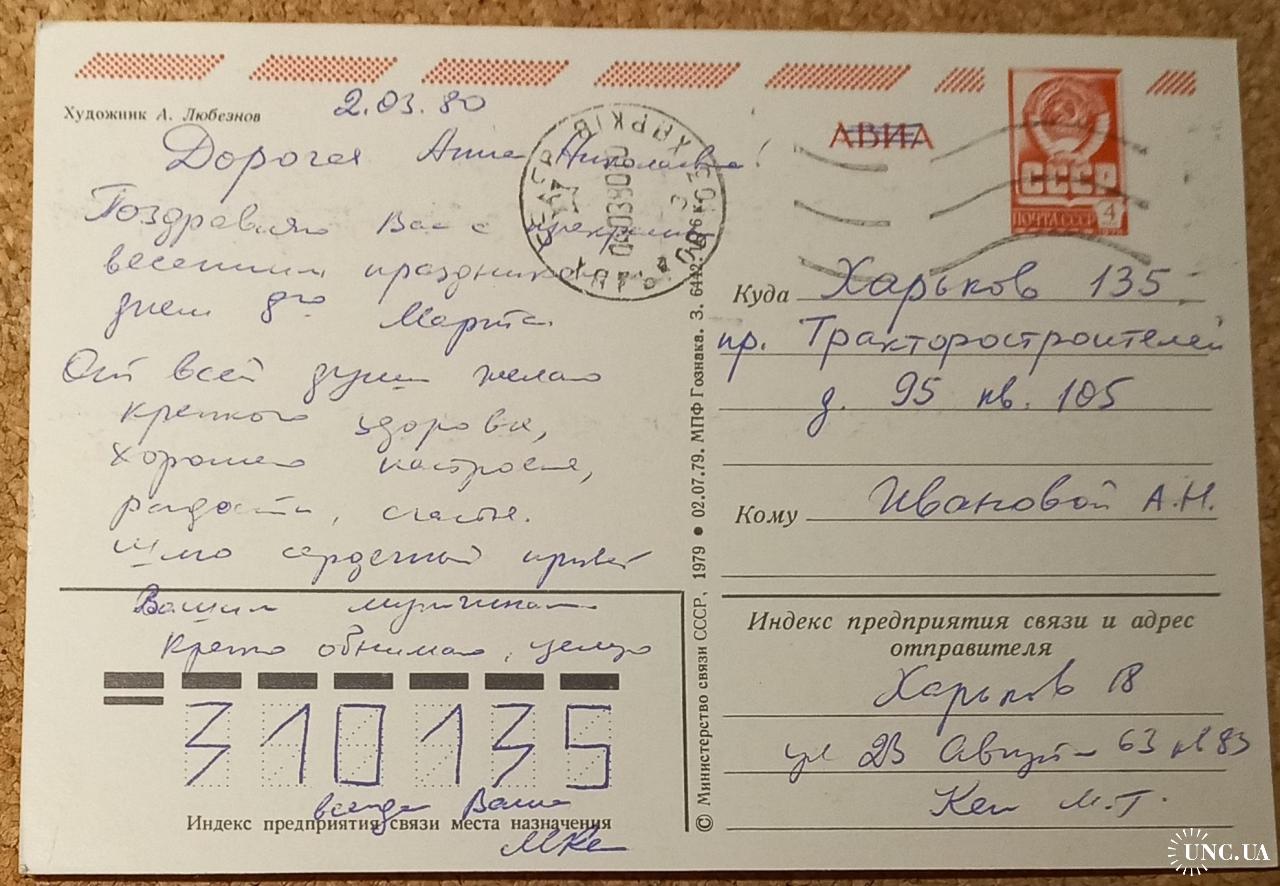 Художник А. Любезнов
2.03.80
Дорогая Анна Николаевна!
Поздравляю Вас с прекрасным
весенним праздником
днем 8го Марта.
От всей души желаю
крепкого здоровья,
хорошего настроения,
радости, счастья.
Шлю сердечный привет
Вашим мужчинам
Крепко обнимаю, целую
310135
всегда Ваша
Индекс предприятия связи места назначения
© Министерство связи СССР, 1979 • 02.07.79. МПФ Гознака. З. 6442.
АВИА
СССР
ПОЧТА СССР 4
ХАРЬКІВ
Куда Харьков 135
пр. Тракторостроителей
д. 95 кв. 105
Кому Ивановой А.Н.
Индекс предприятия связи и адрес
отправителя
Харьков 18
ул 23 Августа 63 кв 83
Кец М.Т.
UNC.UA